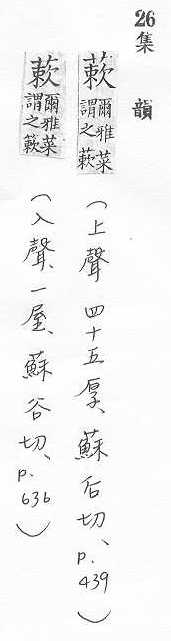 26
集韻
蔌爾雅菜謂之蔌
(上聲 四十五厚、蘇后切、p.439)
蔌爾雅菜謂之蔌
(入聲、一屋、蘇谷切、p.636)